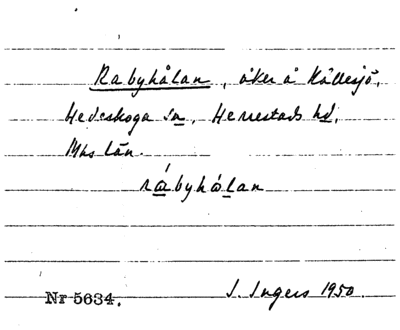 Rabyhålan, åker å Källesjö,
Hedeskoga sn, Herrestads hd,
Mhs län.
rábyhålan
Nr 5634. I. Ingers 1950.